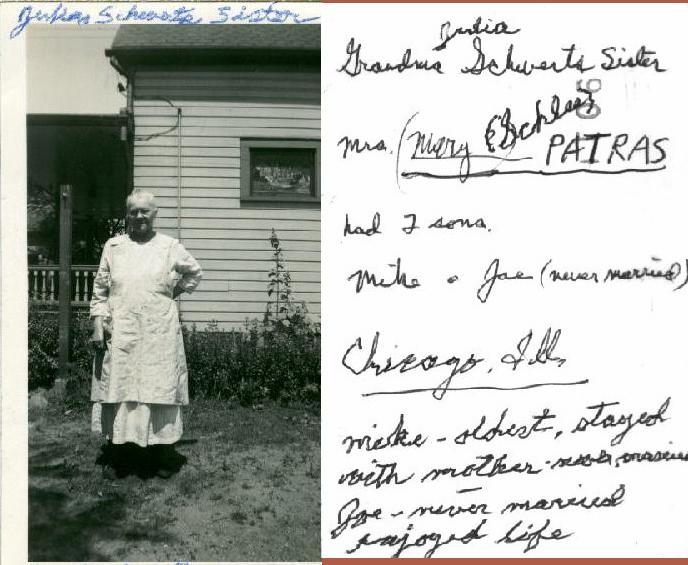 Julias Schwartz Sister
Julia
Grandma Schwartz Sister
Mrs. (Mary PATRAS
had 2 sons.
Mike & Joe (never married)
Chicago, Ills
Mike - oldest, stayed
with mother - never married
Joe - never married
enjoyed life